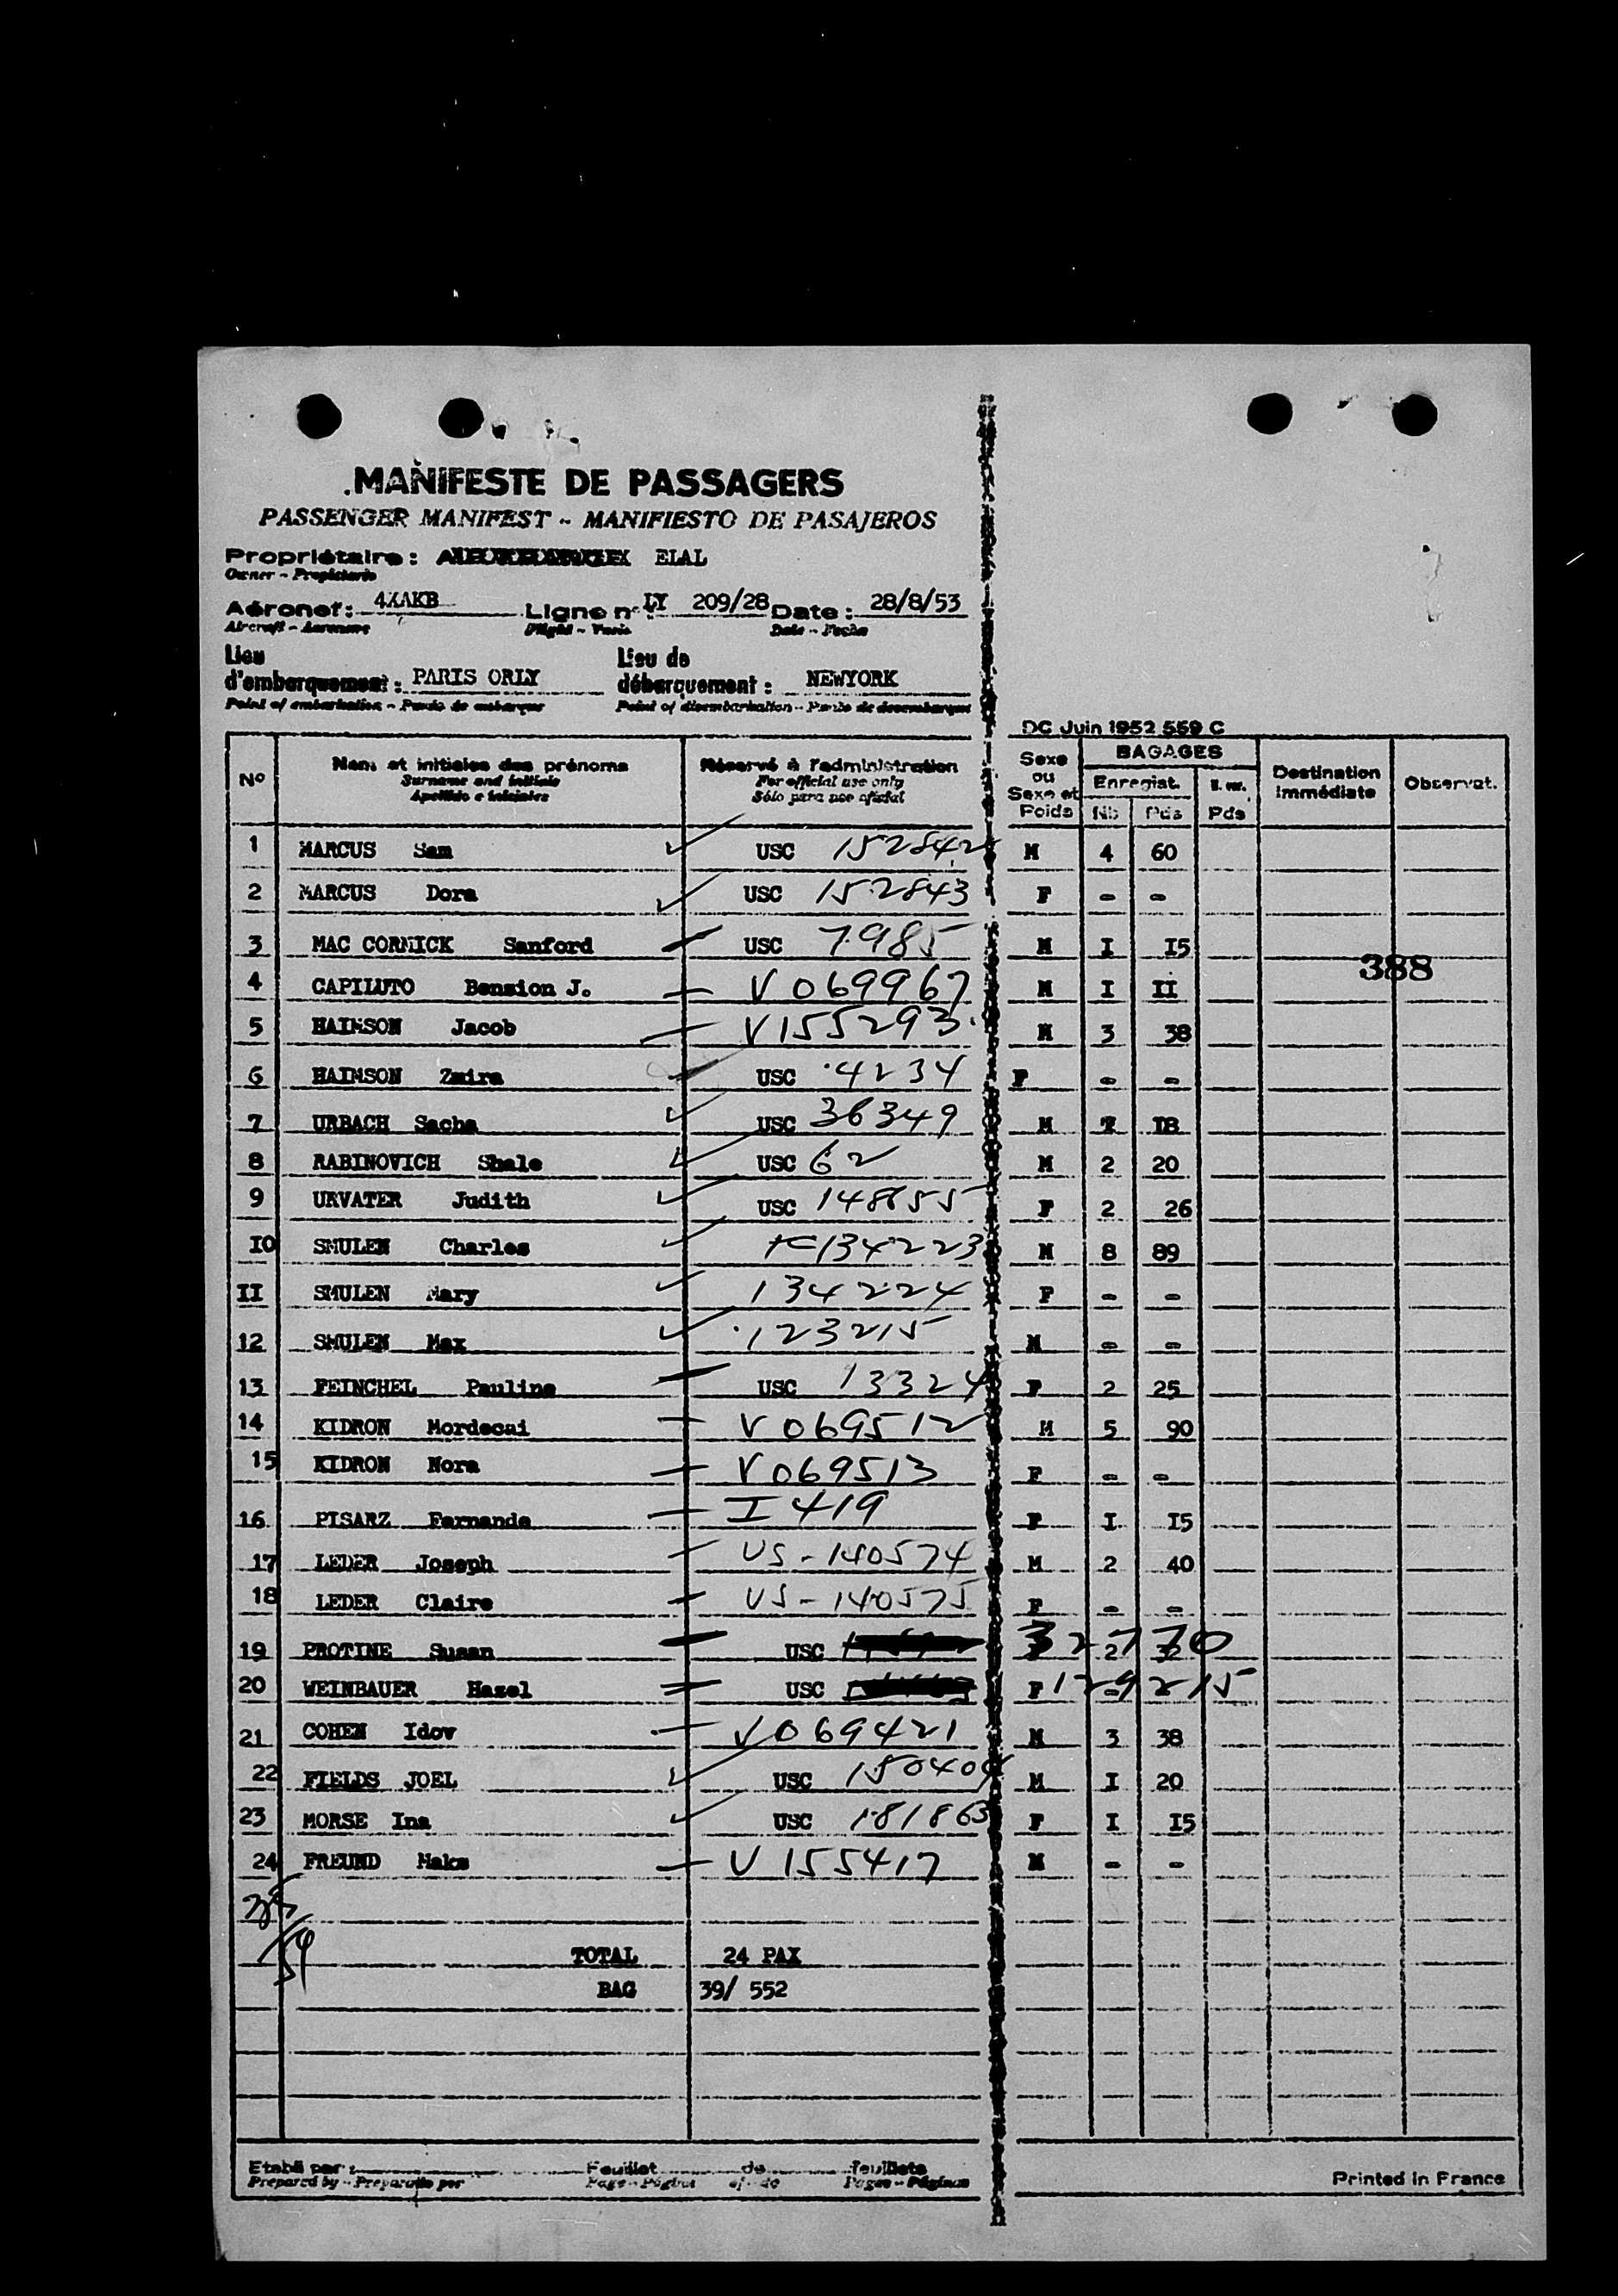 MANIFESTE DE PASSAGERS
PASSENGER MANIFEST - MANIFIESTO DE PASAJEROS
Propriétaire : ELAL
Owner - Propietario
Aéronef : 4XAKB Ligne n° LY 209/28 Date : 28/8/53
Aircraft - Aeronave Flight - Date - Fecha
Lieu d'embarquement : PARIS ORLY Lieu de débarquement : NEWYORK
Point of embarkation - Punto de embarque Point of disembarkation - Punto de desembarque
DC Juin 1952 559 C
N° Nom et initiales des prénoms Réservé à l'administration Sexe ou Sexe et Poids BAGAGES Destination immédiate Observat.
Surname and initials For official use only Enregist.
Apellido e iniciales Sólo para uso oficial Nb Pds Pds
1 MARCUS Sam USC 152842 M 4 60
2 MARCUS Dora USC 152843 F - -
3 MAC CORMICK Sanford USC 7985 M I I5
388
4 CAPILUTO Bension J. V 069967 M I II
5 HAIMSON Jacob V155293 M 3 38
6 HAIMSON Zmira USC 4234 F - -
7 URBACH Sacha USC 36349 M I I8
8 RABINOVICH Shale USC 62 M 2 20
9 URVATER Judith USC 148655 F 2 26
I0 SMULEN Charles 134223 M 8 89
II SMULEN Mary 134224 F - -
12 SMULEN Max 123215 M - -
13 FEINCHEL Pauline USC 13324 F 2 25
14 KIDRON Mordecai V 069512 M 5 90
15 KIDRON Nora V 069513 F - -
16 PISARZ Fernande I 419 F I I5
17 LEDER Joseph US-140574 M 2 40
18 LEDER Claire US-140575 F - -
19 PROTINE Susan USC 32770 2
20 WEINBAUER Hazel USC F 129215
21 COHEN Idov V069421 M 3 38
22 FIELDS JOEL USC 150404 M I 20
23 MORSE Ina USC 181863 F I I5
24 FREUND Maks V 155417 M - -
TOTAL 24 PAX
BAG 39/ 552
Etabli par : Feuillet de feuillets
Prepared by - Preparado por Page - Página of - de Pages - Páginas
Printed in France